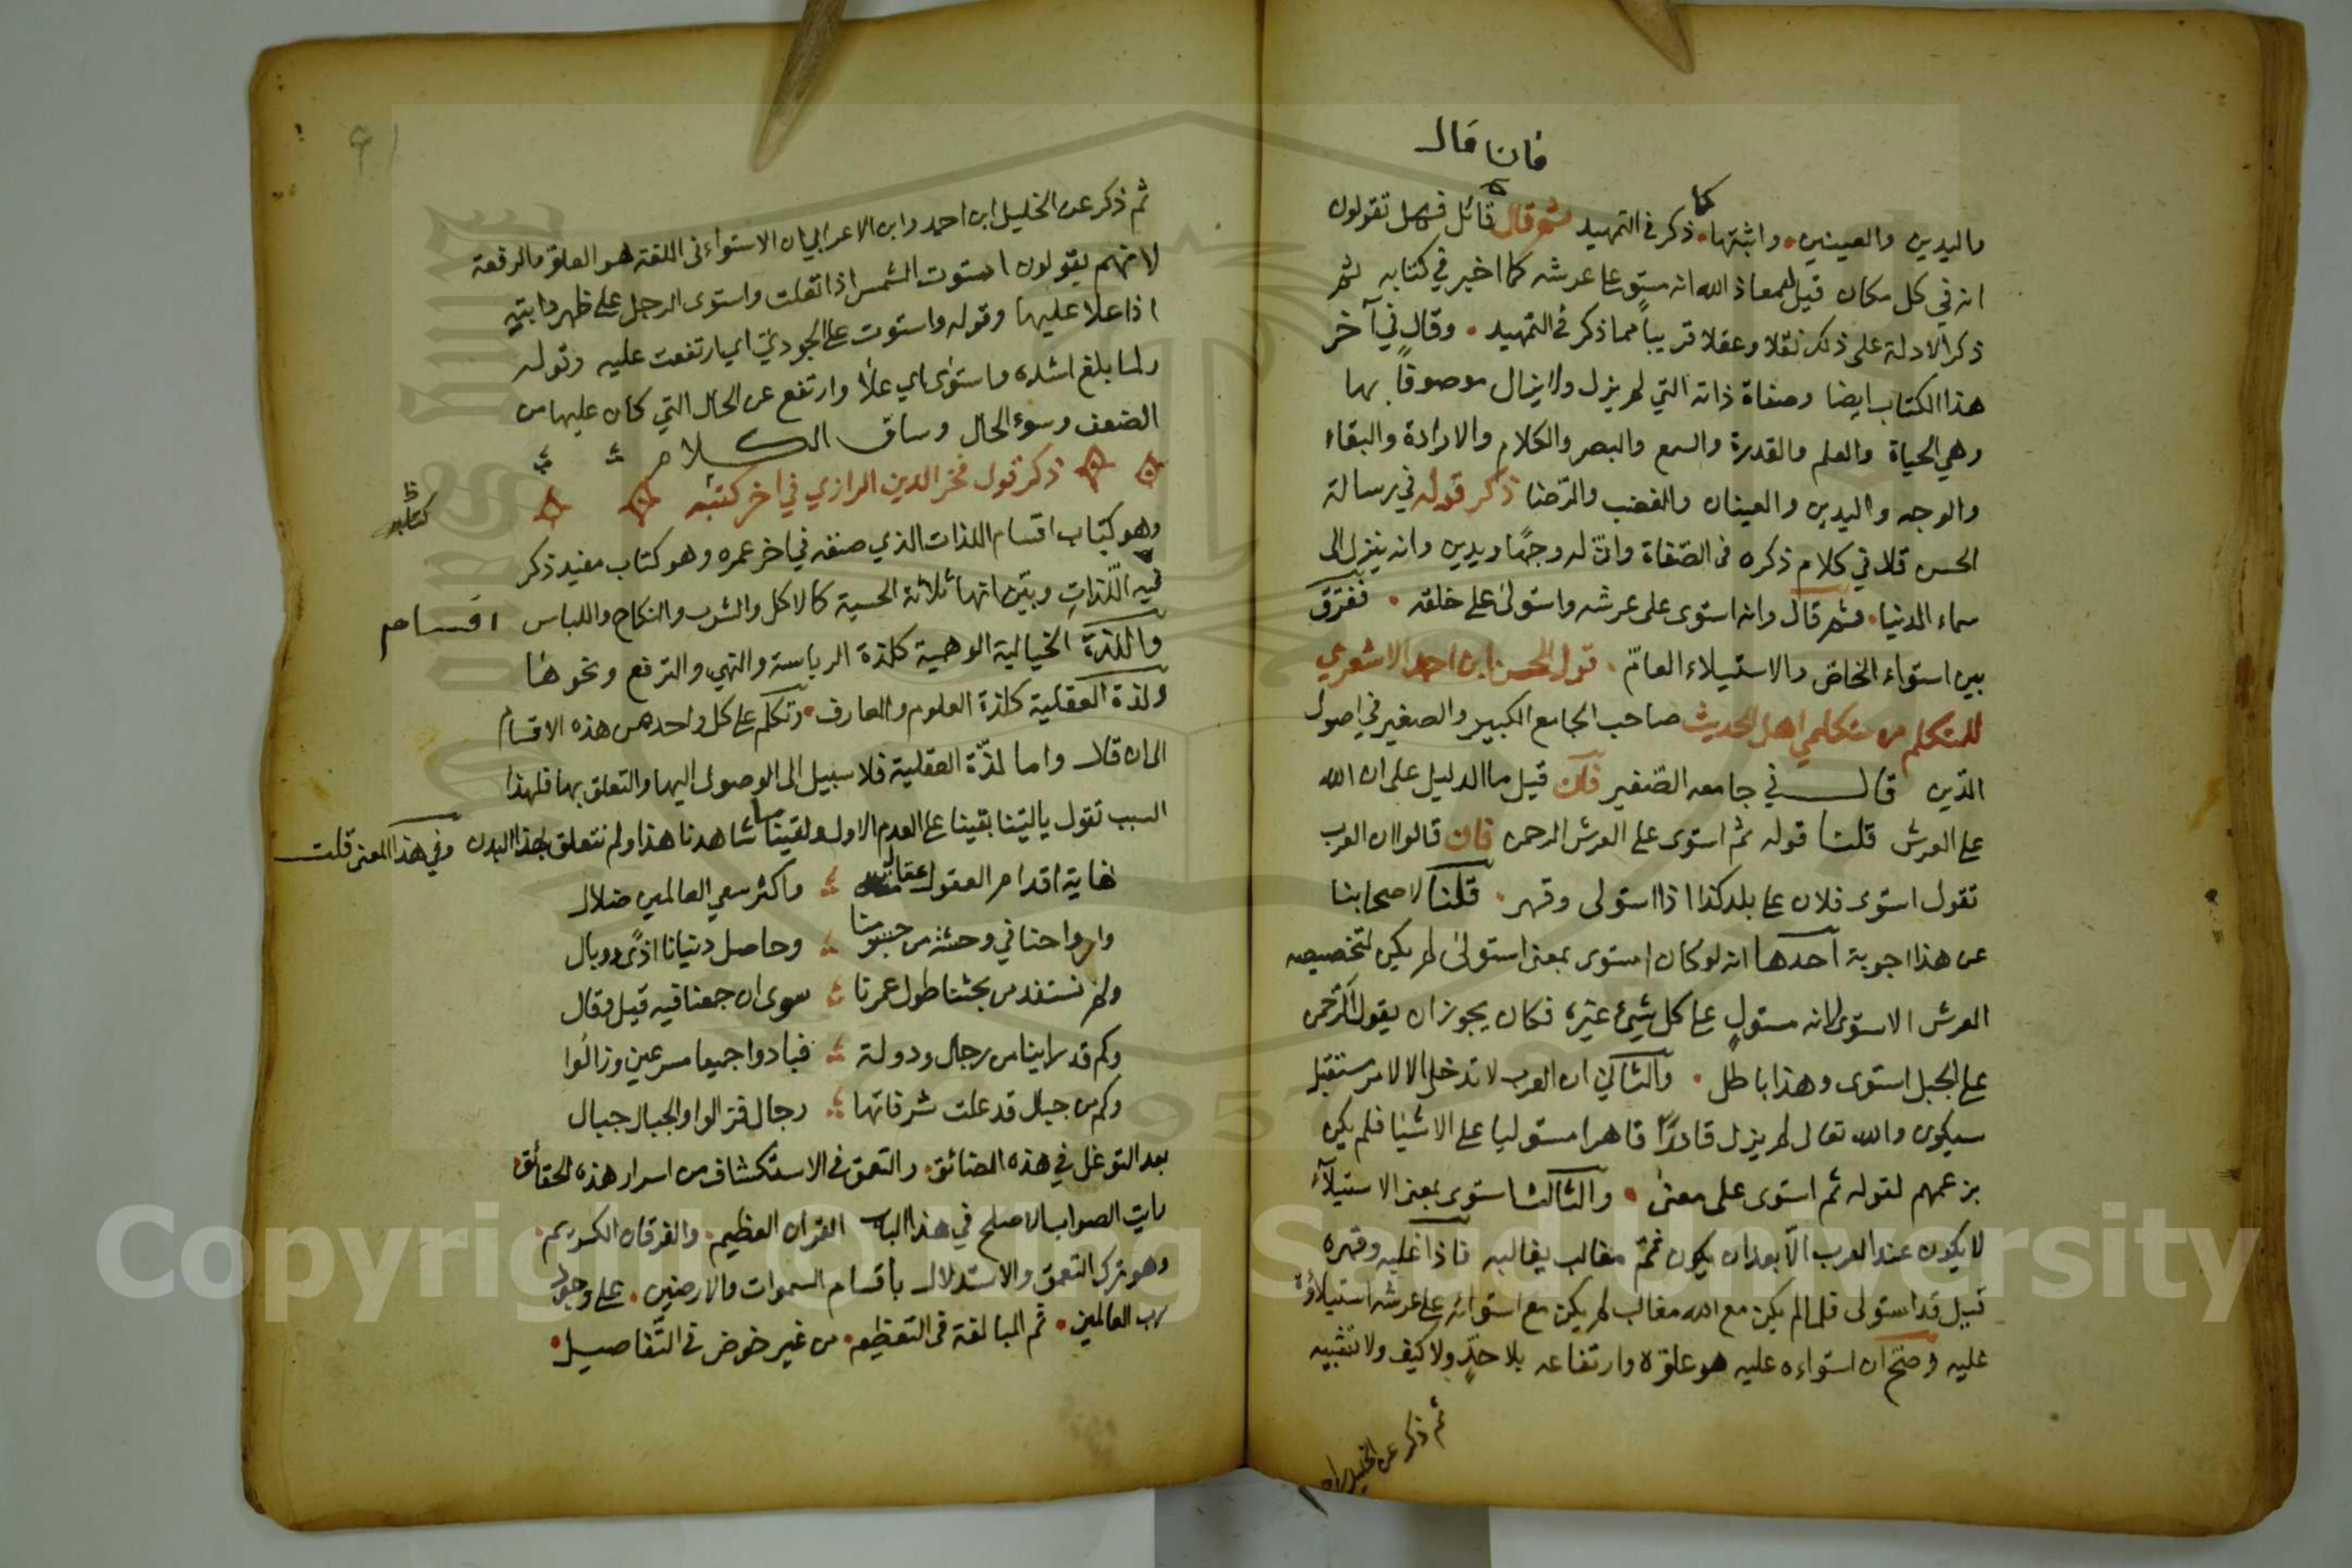 فان قال
واليدين والعينين واثبتها كما ذكر في التمهيد ثم قال قائل فهل تقولون
انه في كل مكان قيل معاذ الله انه مستو على عرشه كما اخبر في كتابه ثم
ذكر الادلة على ذلك نقلا وعقلا قريباً مما ذكر في التمهيد وقال في آخر
هذا الكتاب ايضا وصفاة ذاته التي لم يزل ولا يزال موصوفاً بها
وهي الحياة والعلم والقدرة والسمع والبصر والكلام والارادة والبقاء
والوجه واليدين والعينان والغضب والرّضا ذكر قوله في رسالة
الحسن قلا في كلام ذكره في الصّفاة وانّ له وجهًا ويدين وانه ينزل الى
سماء الدنيا ثم قال وانه استوى على عرشه واستولى على خلقه ففرّق
بين استواء الخاصّ والاستيلاء العامّ قول الحسن ابن احمد الاشعري
للمتكلم من متكلمي اهل الحديث صاحب الجامع الكبير والصغير في اصول
الدّين قال في جامعه الصّغير فان قيل ما الدليل على ان الله
على العرش قلنا قوله ثم استوى على العرش الرحمن فان قالوا ان العرب
تقول استوى فلان على بلد كذا اذا استولى وقهر قلنا لاصحابنا
عن هذا اجوبة احدها انه لو كان استوى بمعنى استولى لم يكن لتخصيصه
العرش الاستوى لانه مستولٍ على كل شيئ غيره فكان يجوز ان يقول الرّحمن
على الجبل استوى وهذا باطل والثاني ان العرب لا تدخل الا لامر مستقبل
سيكون والله تعالى لم يزل قادرًا قاهرا مستوليا على الاشيا فلم يكن
بزعمهم لقوله ثم استوى على معنى والثالث استوى بمعنى الاستيلآء
لا يكون عند العرب الّا بعد ان يكون ثمّ مغالب يغالبه فاذا غلبه وقهره
قيل قد استولى فلما لم يكن مع الله مغالب لم يكن مع استوائه على عرشه استيلاؤه
عليه وصحّ ان استواءه عليه هو علوّه وارتفاعه بلا حدٍّ ولا كيف ولا تشبيه
ثم ذكر عن الخليل
ثم ذكر عن الخليل ابن احمد وابن الاعرابي ان الاستواء في اللغة هو العلوّ والرفعة
لانهم يقولون استوت الشمس اذا تعلت واستوى الرجل على ظهر دابته
اذا علا عليها وقوله واستوت على الجوديّ اي ارتفعت عليه وقوله
ولما بلغ اشده واستوى اي علا وارتفع عن الحال التي كان عليها من
الضعف وسوء الحال وساق الكلام
ذكر قول فخر الدين الرازي في اخر كتبه
كتابه ظ
وهو كتاب اقسام اللذات الذي صنفه في اخر عمره وهو كتاب مفيد ذكر
فيه اللّذاتِ وبيّن انها ثلاثة الحسية كالاكل والشرب والنكاح واللباس اقسام
واللذة الخيالية الوهمية كلذة الرياسة والنهي والترفع ونحوها
ولذة العقلية كلذة العلوم والمعارف وتكلم على كل واحدة من هذه الاقسام
الى ان قال واما لذّة العقلية فلا سبيل الى الوصول اليها والتعلق بها فلهذا
السبب نقول ياليتنا بقينا على العدم الاول وليتنا ما شاهدنا هذا ولم نتعلق بهذا البدن وفي هذا المعنى قلت
نهاية اقدام العقول عقال واكثر سعي العالمين ضلال
وارواحنا في وحشة من جسومنا وحاصل دنيانا اذًى ووبال
ولم نستفد من بحثنا طول عمرنا سوى ان جمعنا فيه قيل وقال
وكم قد راينا من رجال ودولة فبادوا جميعا مسرعين وزالوا
وكم من جبال قد علت شرفاتها رجال فزالوا والجبال جبال
بعد التوغل في هذه المضائق والتعمق في الاستكشاف من اسرار هذه الحقائق
رايت الصواب الاصلح في هذا الباب القران العظيم والفرقان الكريم
وهو ترك التعمق والاستدلال باقسام السموات والارضين على وجود
رب العالمين ثم المبالغة في التعظيم من غير خوض في التّفاصيل
Copyright © King Saud University